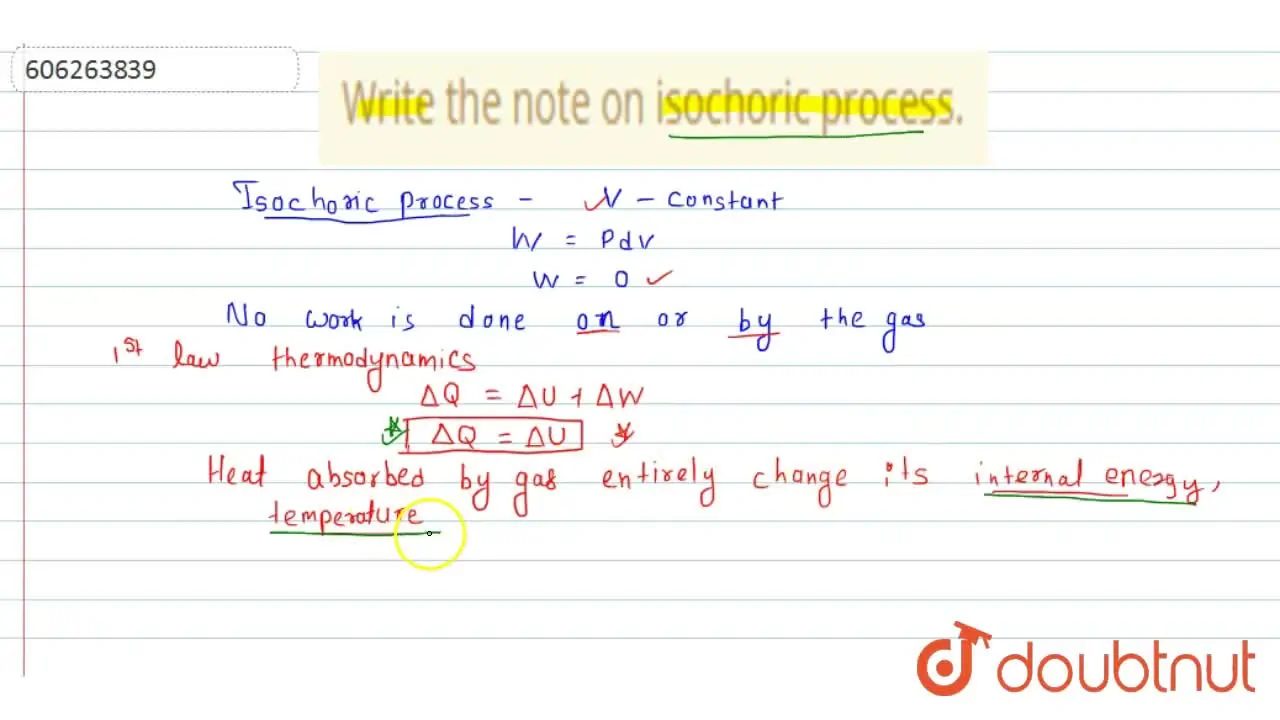 606263839
Write the note on isochoric process.
Isochoric process - V - constant
W = PdV
W = 0
No work is done on or by the gas
1st law thermodynamics
ΔQ = ΔU + ΔW
ΔQ = ΔU
Heat absorbed by gas entirely change its internal energy,
temperature
doubtnut